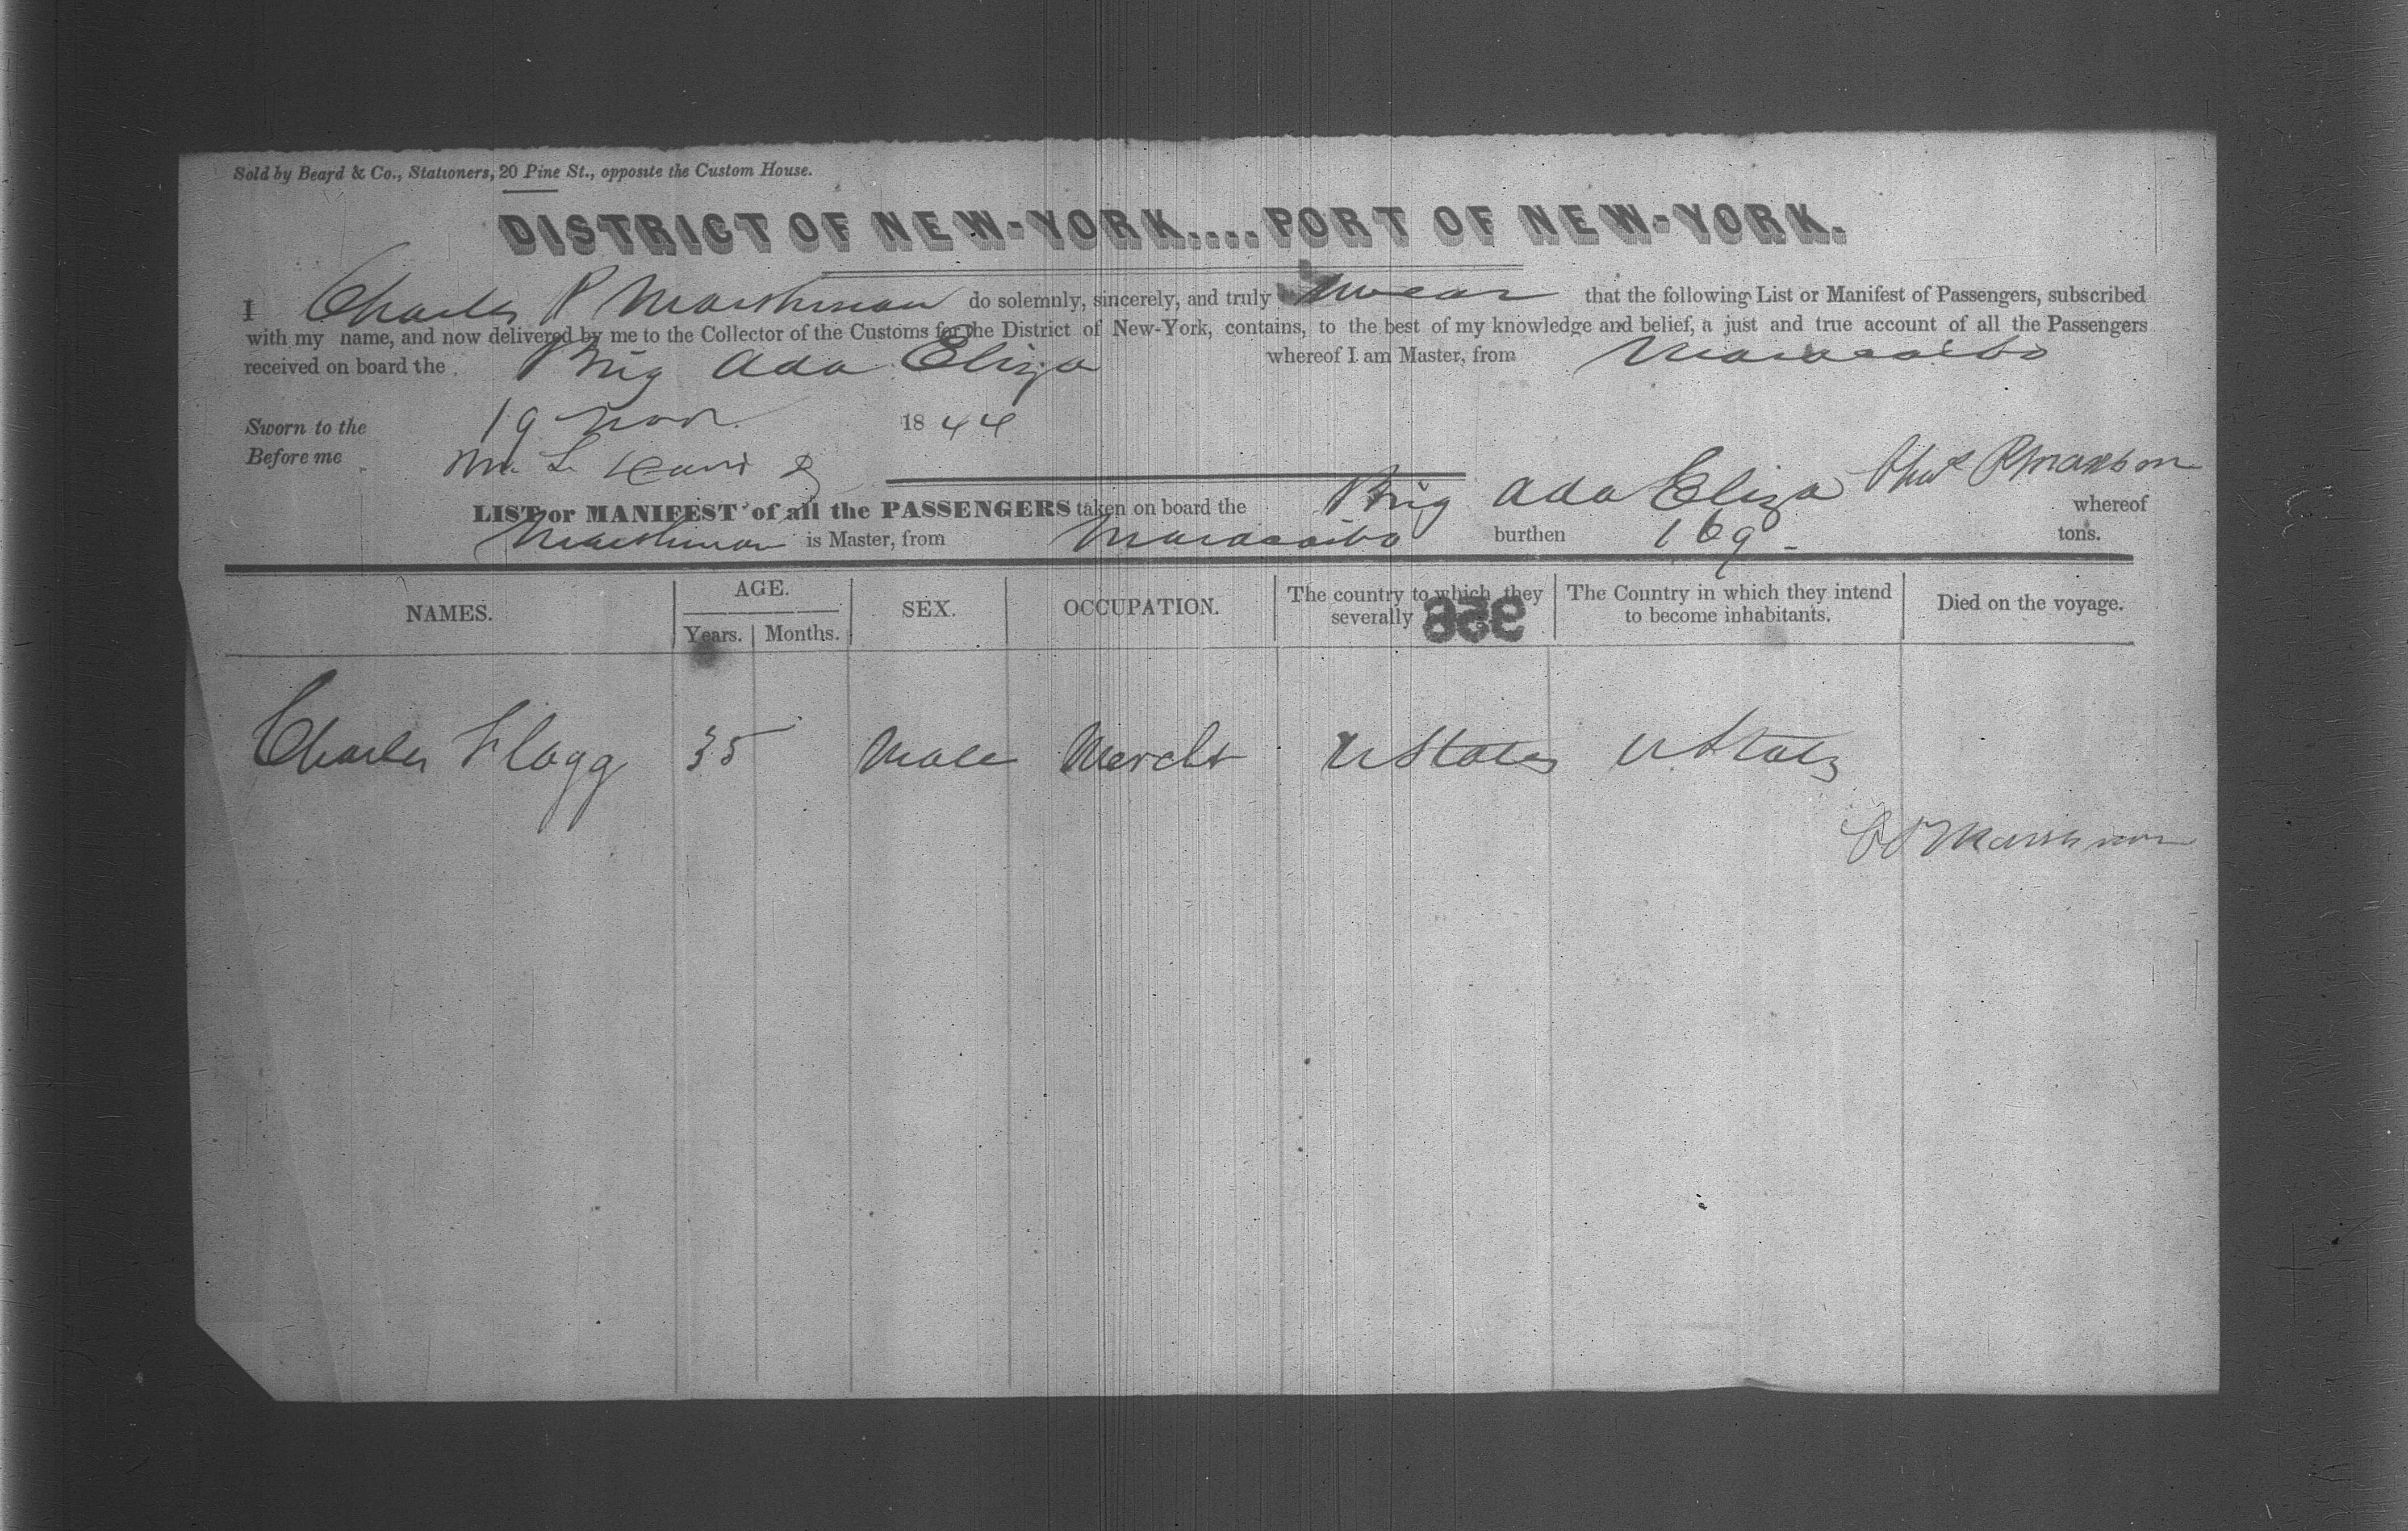 Sold by Beard & Co., Stationers, 20 Pine St., opposite the Custom House.
DISTRICT OF NEW-YORK....PORT OF NEW-YORK.
I Charles P Marshman do solemnly, sincerely, and truly swear that the following List or Manifest of Passengers, subscribed
with my name, and now delivered by me to the Collector of the Customs for the District of New-York, contains, to the best of my knowledge and belief, a just and true account of all the Passengers
received on board the Brig Ada Eliza whereof I am Master, from Maracaibo
Sworn to the 19 Nov. 1844
Before me
LIST or MANIFEST of all the PASSENGERS taken on board the Brig Ada Eliza Chas P whereof
Marshman is Master, from Maracaibo burthen 169 tons.
NAMES. AGE. SEX. OCCUPATION. The country to which they severally The Country in which they intend to become inhabitants. Died on the voyage.
Years. Months.
958
Charles Flagg 35 Male Mercht U States U States
C P Marshman